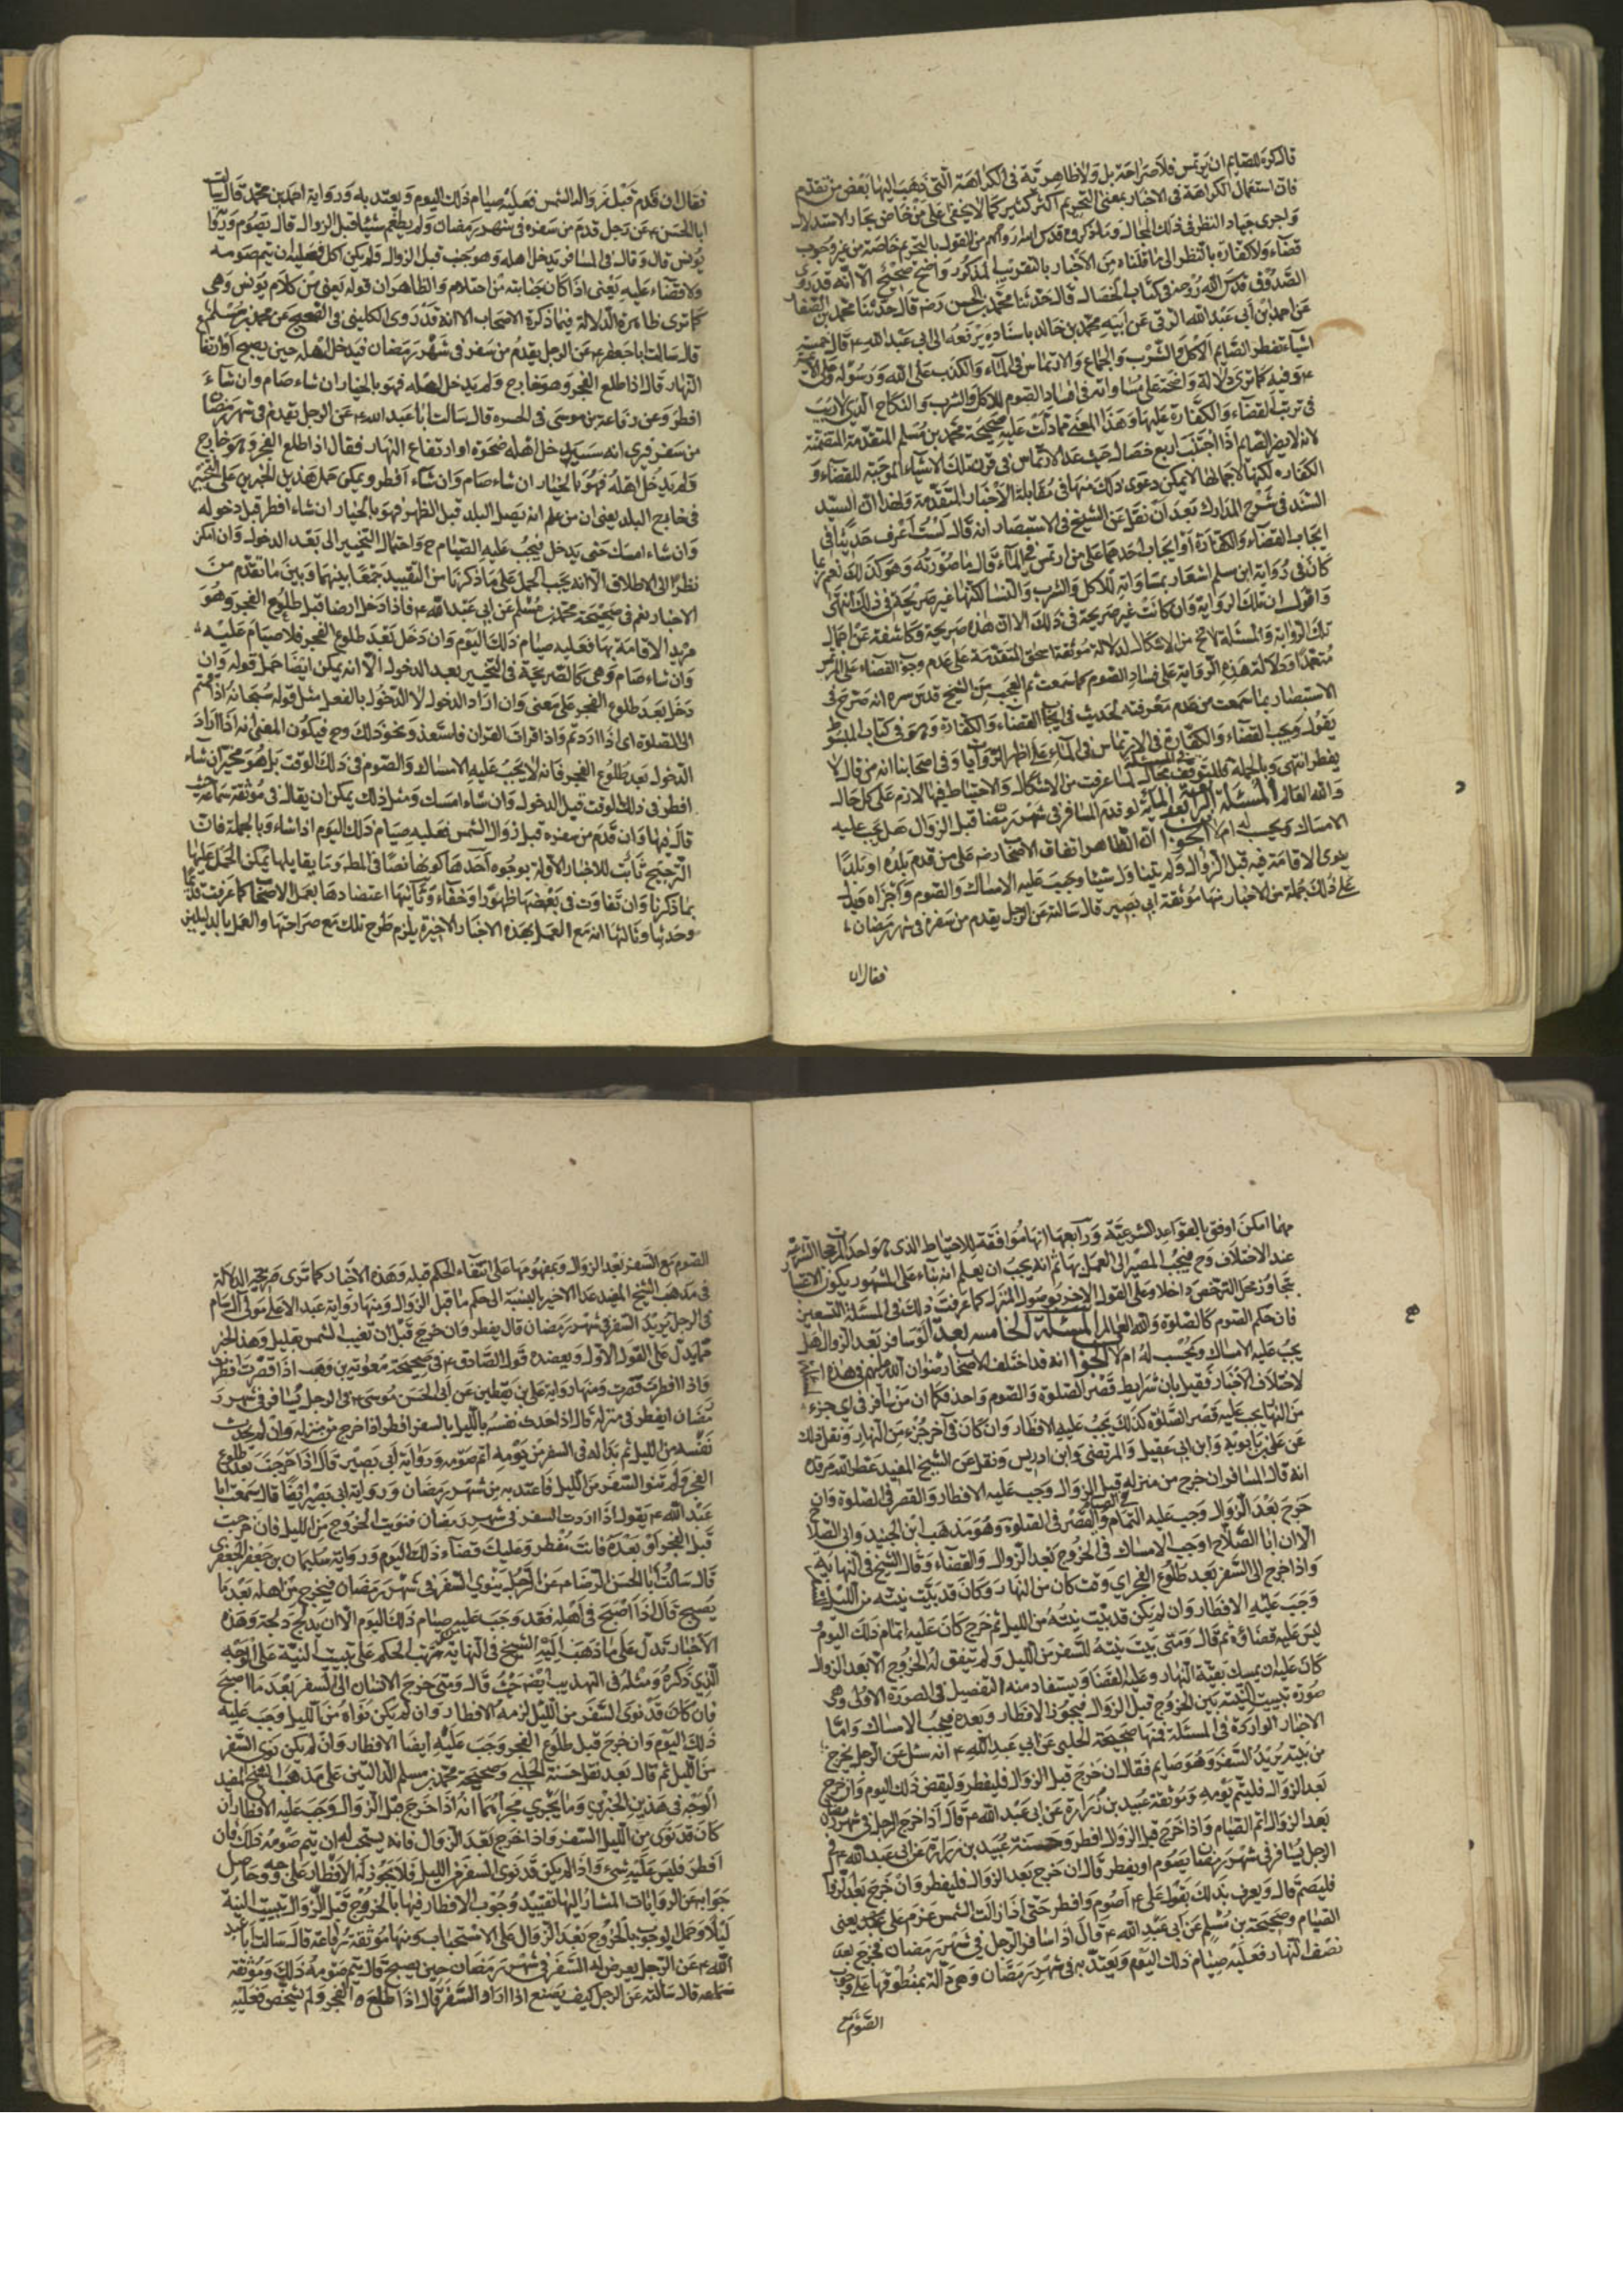 قال كره للصايم ان يرتمس فلا صراحة بل ولا ظاهرية في الكراهة التي ذهب اليها بعض من تقدم
فان استعمال الكراهة في الاخبار بمعنى التحريم اكثر كثير كما لا يخفى على من خاض بحار الاستدلال
ولجرى جياد النظر في ذلك المجال وما ذكروه قدس الله ارواحهم من القول بالتحريم خاصة من غير وجوب
قضاء ولا كفارة بالنظر الى ما نقلناه من الاخبار بالتقريب المذكور واضح صحيح الا انه قد روى
الصدوق قدس الله روحه في كتاب الخصال قال حدثنا محمد بن الحسن رضه قال حدثنا محمد بن الصفار
عن احمد بن ابي عبد الله البرقي عن ابيه محمد بن خالد باسناده يرفعه الى ابي عبد الله ع قال خمسة
اشياء تفطر الصايم الاكل والشرب والجماع والارتماس في الماء والكذب على الله ورسوله وعلى الائمة
ع وفيه كما ترى دلالة واضحة على مساواته في افساد الصوم للاكل والشرب والنكاح الذي لا ريب
في ترتب القضاء والكفارة عليها وهذا المعنى مما دلت عليه صحيحة محمد بن مسلم المتقدمة المتضمنة
لانه لا يضر الصايم اذا اجتنب اربع خصال حيث عد الارتماس في قرن تلك الاشياء الموجبة للقضاء و
الكفاره لكنها لاجمالها لا يمكن دعوى ذلك منها في مقابلة الاخبار المتقدمة ولهذا ان السيد
السند في شرح المدارك بعد ان نقل عن الشيخ في الاستبصار انه قال لست اعرف حديثا في
ايجاب القضاء والكفارة او ايجاب احدهما على من ارتمس في الماء قال ما صورته وهو كذلك نعم ربما
كان في رواية ابن مسلم اشعار بمساواته للاكل والشرب والنساء لكنها غير صريحة في ذلك انتهى
واقول ان تلك الرواية وان كانت غير صريحة في ذلك الا ان هذه صريحة وكاشفة عن اجمال
تلك الرواية والمسئلة لا تخ من الاشكال لدلالة موثقة اسحق المتقدمة على عدم وجوب القضاء على المرتمس
متعمدا ودلالة هذه الرواية على فساد الصوم كما سمعت ثم العجب من الشيخ قدس سره انه صرح في
الاستبصار بما سمعت من عدم معرفته لحديث في ايجاب القضاء والكفارة وهو في كتاب المبسوط
يقول ويجب القضاء والكفارة في الارتماس في الماء على اظهر الروايات وفي اصحابنا انه من قال لا
يفطر انتهى وبالجملة فللتوقف في المسئلة مجال لما عرفت من الاشكال والاحتياط فيها لازم على كل حال
والله العالم المسئلة الرابعة المائة لو قدم المسافر في شهر رمضان قبل الزوال هل يجب عليه
الامساك ويحسب له ام لا الجواب ان الظاهر اتفاق الاصحاب رضه على من قدم بلده او بلدا
ينوى الاقامة فيه قبل الزوال ولم يتناول شيئا وجب عليه الامساك والصوم واجزاه ويدل
على ذلك جملة من الاخبار منها موثقة ابي بصير قال سالته عن الرجل يقدم من سفره في شهر رمضان
فقال ان
فقال ان قدم قبل زوال الشمس فعليه صيام ذلك اليوم ويعتد به ورواية احمد بن محمد قال سالت
ابا الحسن ع عن رجل قدم من سفره في شهر رمضان ولم يطعم شيئا قبل الزوال قال يصوم ورواية
يونس قال وقال في المسافر يدخل اهله وهو جنب قبل الزوال ولم يكن اكل فعليه ان يتم صومه
ولا قضاء عليه يعنى اذا كان جنابته من احتلام والظاهر ان قوله يعنى من كلام يونس وهي
كما ترى ظاهرة الدلالة فيما ذكره الاصحاب الا انه قد روى الكليني في الصحيح عن محمد بن مسلم
قال سالت ابا جعفر ع عن الرجل يقدم من سفر في شهر رمضان فيدخل اهله حين يصبح او ارتفاع
النهار قال اذا طلع الفجر وهو خارج ولم يدخل اهله فهو بالخيار ان شاء صام وان شاء
افطر وعن رفاعة بن موسى في الحسنه قال سالت ابا عبد الله ع عن الرجل يقدم في شهر رمضان
من سفر فيرى انه سيدخل اهله ضحوه او ارتفاع النهار فقال اذا طلع الفجر وهو خارج
ولم يدخل اهله فهو بالخيار ان شاء صام وان شاء افطر ويمكن حمل هذين الخبرين على التخيير
في خارج البلد يعنى ان من علم انه يصل البلد قبل الظهر فهو بالخيار ان شاء افطر قبل دخوله
وان شاء امسك حتى يدخل فيجب عليه الصيام ح واحتمال التخيير الى بعد الدخول وان امكن
نظرا الى الاطلاق الا انه يجب الحمل على ما ذكرنا من التقييد جمعا بينهما وبين ما تقدم من
الاخبار نعم في صحيحة محمد بن مسلم عن ابي عبد الله ع فاذا دخل ارضا قبل طلوع الفجر وهو
مريد الاقامة بها فعليه صيام ذلك اليوم وان دخل بعد طلوع الفجر فلا صيام عليه
وان شاء صام وهي كالصريحة في التخيير بعد الدخول الا انه يمكن ايضا حمل قوله وان
دخل بعد طلوع الفجر على معنى وان اراد الدخول لا الدخول بالفعل مثل قوله سبحانه اذا قمتم
الى الصلوة اى اذا اردتم واذا قرات القران فاستعذ ونحو ذلك وح فيكون المعنى انه اذا اراد
الدخول بعد طلوع الفجر فانه لا يجب عليه الامساك والصوم في ذلك الوقت بل هو مخير ان شاء
افطر في ذلك الوقت قبل الدخول وان شاء امسك ومثل ذلك يمكن ان يقال في موثقة سماعة حيث
قال فيها وان قدم من سفره قبل زوال الشمس فعليه صيام ذلك اليوم اذا شاء وبالجملة فان
الترجيح ثابت للاخبار الاولة بوجوه احدها كونها نصا في المط وما يقابلها يمكن الحمل عليها
بما ذكرنا وان تفاوت في بعضها ظهورا وخفاء وثانيها اعتضادها بعمل الاصحاب كما عرفت قديما
وحديثا وثالثها انه مع العمل بهذه الاخبار الاخيرة يلزم طرح تلك مع صراحتها والعمل بالدليلين
مهما امكن اوفق بالقواعد الشرعية ورابعها انها موافقة للاحتياط الذي هو احد المرجحات الشرعية
عند الاختلاف وح فيجب المصير الى العمل بها ثم انه يجب ان يعلم انه بناء على المشهور يكون الاعتبار
بتجاوز محل الترخص داخلا وعلى القول الاخر بوصول المنزل كما عرفت ذلك في المسئلة التسعين
فان حكم الصوم كالصلوة والله العالم المسئلة الخامسه بعد المائة لو سافر بعد الزوال هل
يجب عليه الامساك ويحسب له ام لا الجواب انه قد اختلف الاصحاب رضوان الله عليهم في هذه
لاختلاف الاخبار فقيل بان شرايط قصر الصلوة والصوم واحد فكما ان من سافر في اى جزء
من النهار يجب عليه قصر الصلوة كذلك يجب عليه الافطار وان كان في آخر جزء من النهار ونقل ذلك
عن علي بن بابويه وابن ابي عقيل والمرتضى وابن ادريس ونقل عن الشيخ المفيد عطر الله مرقده
انه قال المسافر ان خرج من منزله قبل الزوال وجب عليه الافطار والقصر في الصلوة وان
خرج بعد الزوال وجب عليه التمام في الصيام والقصر في الصلوة وهو مذهب ابن الجنيد وابى الصلاح
الا ان ابا الصلاح اوجب الامساك في الخروج بعد الزوال والقضاء وقال الشيخ في النهاية
واذا خرج الى السفر بعد طلوع الفجر اي وقت كان من النهار وكان قد بيت نيته من الليل للسفر
وجب عليه الافطار وان لم يكن قد بيت نيته من الليل ثم خرج كان عليه اتمام ذلك اليوم
ليس عليه قضاؤه ثم قال ومتى بيت نيته للسفر من الليل ولم يتفق له الخروج الا بعد الزوال
كان عليه ان يمسك بقية النهار وعليه القضاء ويستفاد منه التفصيل في الصورة الاولى وهي
صورة تبييت النية بين الخروج قبل الزوال فيجوز الافطار وبعده فيجب الامساك واما
الاخبار الواردة في المسئلة فمنها صحيحة الحلبي عن ابي عبد الله ع انه سئل عن الرجل يخرج
من بيته يريد السفر وهو صايم فقال ان خرج قبل الزوال فليفطر وليقض ذلك اليوم وان خرج
بعد الزوال فليتم يومه وموثقة عبيد بن زرارة عن ابي عبد الله ع قال اذا خرج الرجل في شهر رمضان
بعد الزوال اتم الصيام واذا خرج قبل الزوال افطر وحسنة عبيد بن زرارة عن ابي عبد الله ع في
الرجل يسافر في شهر رمضان يصوم او يفطر قال ان خرج بعد الزوال فليفطر وان خرج بعد الزوال
فليصم قال ويعرف بذلك بقول علي ع اصوم وافطر حتى اذا زالت الشمس عزم علي يعنى
الصيام وصحيحة بن مسلم عن ابي عبد الله ع قال اذا سافر الرجل في شهر رمضان فخرج بعد
نصف النهار فعليه صيام ذلك اليوم ويعتد به في شهر رمضان وهي دالة بمنطوقها على وجوب
الصوم مع
الصوم مع السفر بعد الزوال وبمفهومها على انتفاء الحكم قبله وهذه الاخبار كما ترى صريحة الدلالة
في مذهب الشيخ المفيد عدا الاخير بالنسبة الى حكم ما قبل الزوال ومنها رواية عبد الاعلى مولى ال سام
في الرجل يريد السفر في شهر رمضان قال يفطر وان خرج قبل ان تغيب الشمس بقليل وهذا الخبر
مما يدل على القول الاول ويعضده قول الصادق ع في صحيحة معوية بن وهب اذا قصرت افطرت
واذا افطرت قصرت ومنها رواية علي بن يقطين عن ابي الحسن موسى ع في الرجل يسافر في شهر ر
مضان ايفطر في منزله قال اذا حدث نفسه بالليل بالسفر افطر اذا خرج من منزله وان لم يحدث
نفسه من الليل ثم بدا له في السفر من يومه اتم صومه ورواية ابي بصير قال اذا خرجت بعد طلوع
الفجر ولم تنو السفر من الليل فاعتد به من شهر رمضان ورواية ابي بصير ايضا قال سمعت ابا
عبد الله ع يقول اذا اردت السفر في شهر رمضان فنويت الخروج من الليل فان خرجت
قبل الفجر او بعده فانت مفطر وعليك قضاء ذلك اليوم ورواية سليمان بن جعفر الجعفري
قال سالت ابا الحسن الرضا ع عن الرجل ينوي السفر في شهر رمضان فيخرج من اهله بعد ما
يصبح قال اذا اصبح في اهله فقد وجب عليه صيام ذلك اليوم الا ان يدلج دلجة وهذه
الاخبار تدل على ما ذهب اليه الشيخ في النهاية من ترتب الحكم على تبييت النية على الوجه
الذي ذكره ومثله في التهذيب ايضا حيث قال ومتى خرج الانسان الى السفر بعد ما اصبح
فان كان قد نوى السفر من الليل لزمه الافطار وان لم يكن نواه من الليل وجب عليه
ذلك اليوم وان خرج قبل طلوع الفجر وجب عليه ايضا الافطار وان لم يكن نوى السفر
من الليل ثم قال بعد نقل حسنة الحلبي وصحيحة محمد بن مسلم الدالتين على مذهب الشيخ المفيد
الوجه في هذين الخبرين وما يجري مجراهما انه اذا خرج قبل الزوال وجب عليه الافطار ان
كان قد نوى من الليل السفر واذا خرج بعد الزوال فانه يستحب له ان يتم صومه ذلك فان
افطر فليس عليه شيء واذا لم يكن قد نوى السفر من الليل فلا يجوز له الافطار على وجه وحاصل
جوابه عن الروايات المشار اليها تقييد وجوب الافطار فيها بالخروج قبل الزوال تبييت النية
ليلا وحمل الوجوب بالخروج بعد الزوال على الاستحباب ومنها موثقة رفاعة قال سالت ابا عبد
الله ع عن الرجل يعرض له السفر في شهر رمضان حين يصبح قال يتم صومه ذلك وموثقة
سماعه قال سالته عن الرجل كيف يصنع اذا اراد السفر قال اذا طلع الفجر ولم يشخص فعليه